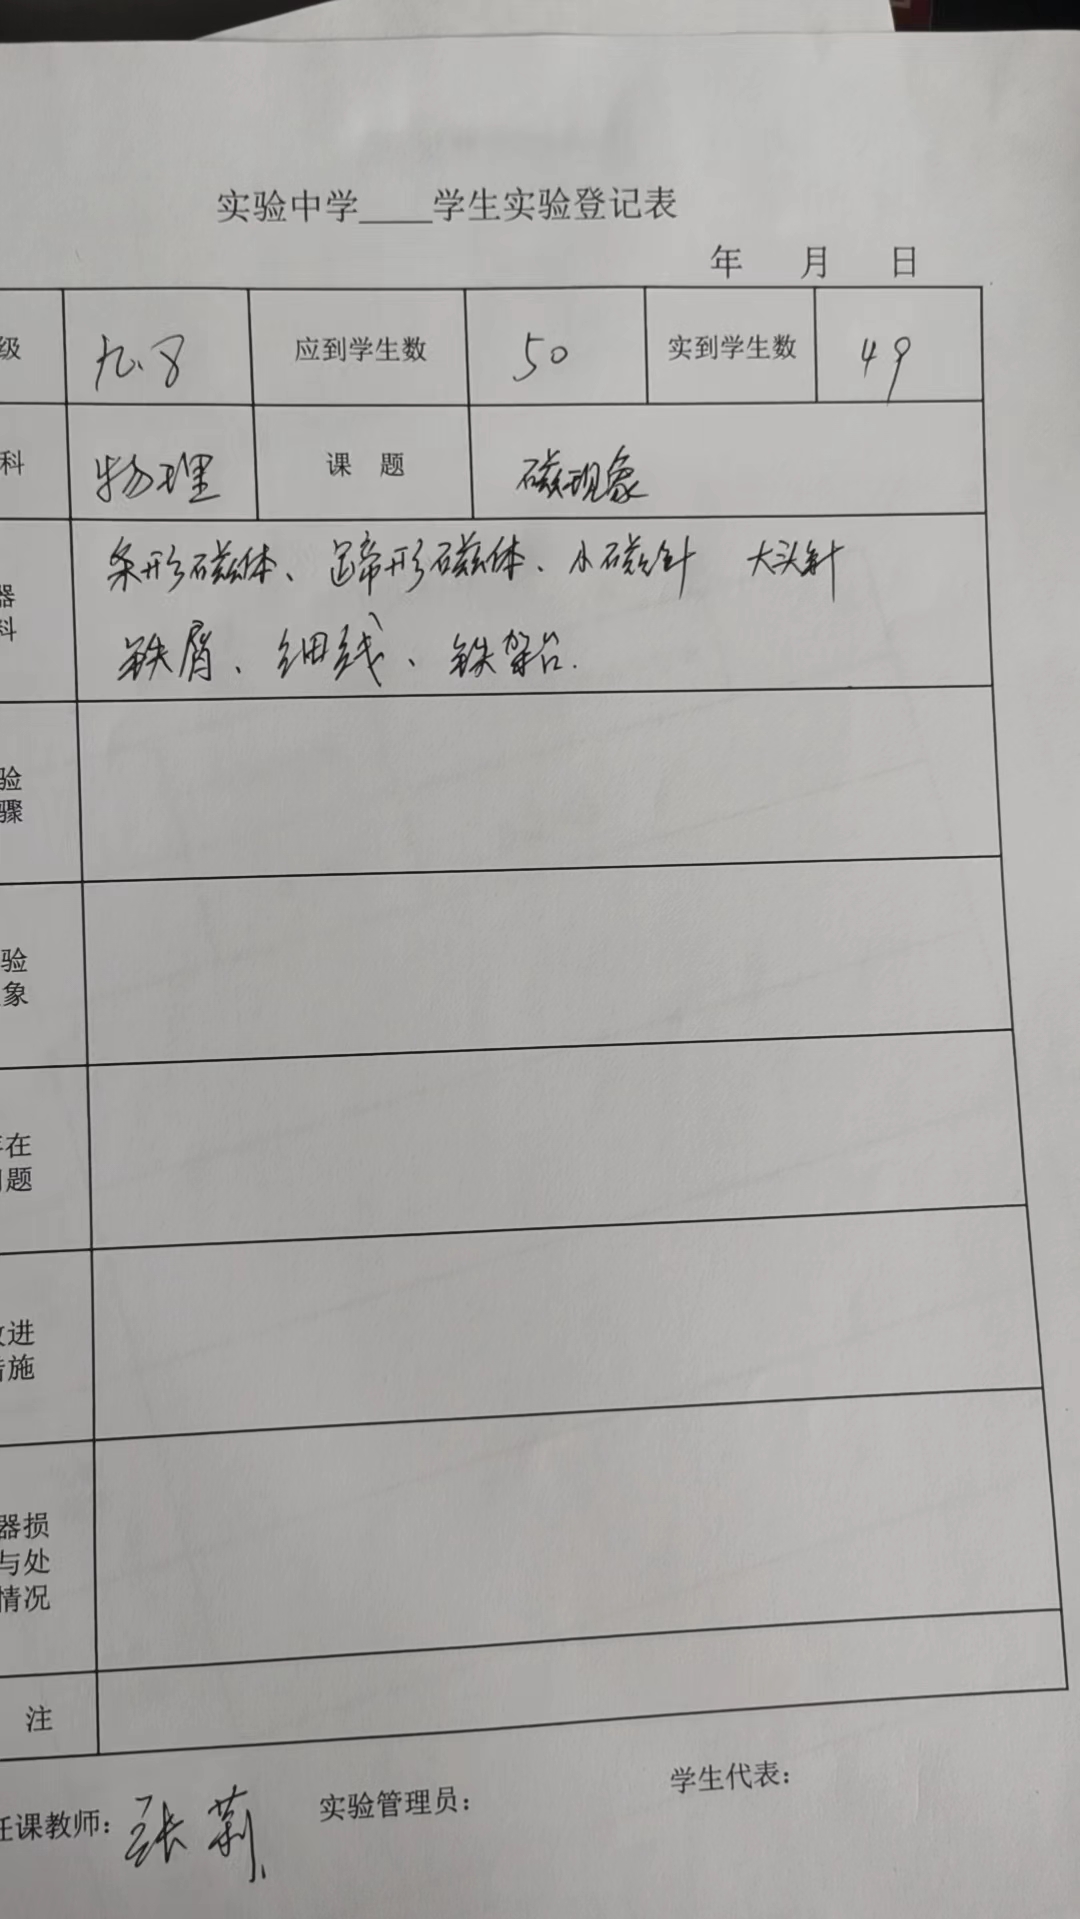 实验中学____学生实验登记表
年 月 日
级 九.8 应到学生数 50 实到学生数 49
科 物理 课 题 磁现象
器
料
条形磁体、蹄形磁体、小磁针 大头针
铁屑、细线、铁架台.
验
骤
验
象
存在
问题
改进
措施
器损
与处
情况
注
任课教师：张莉 实验管理员： 学生代表：